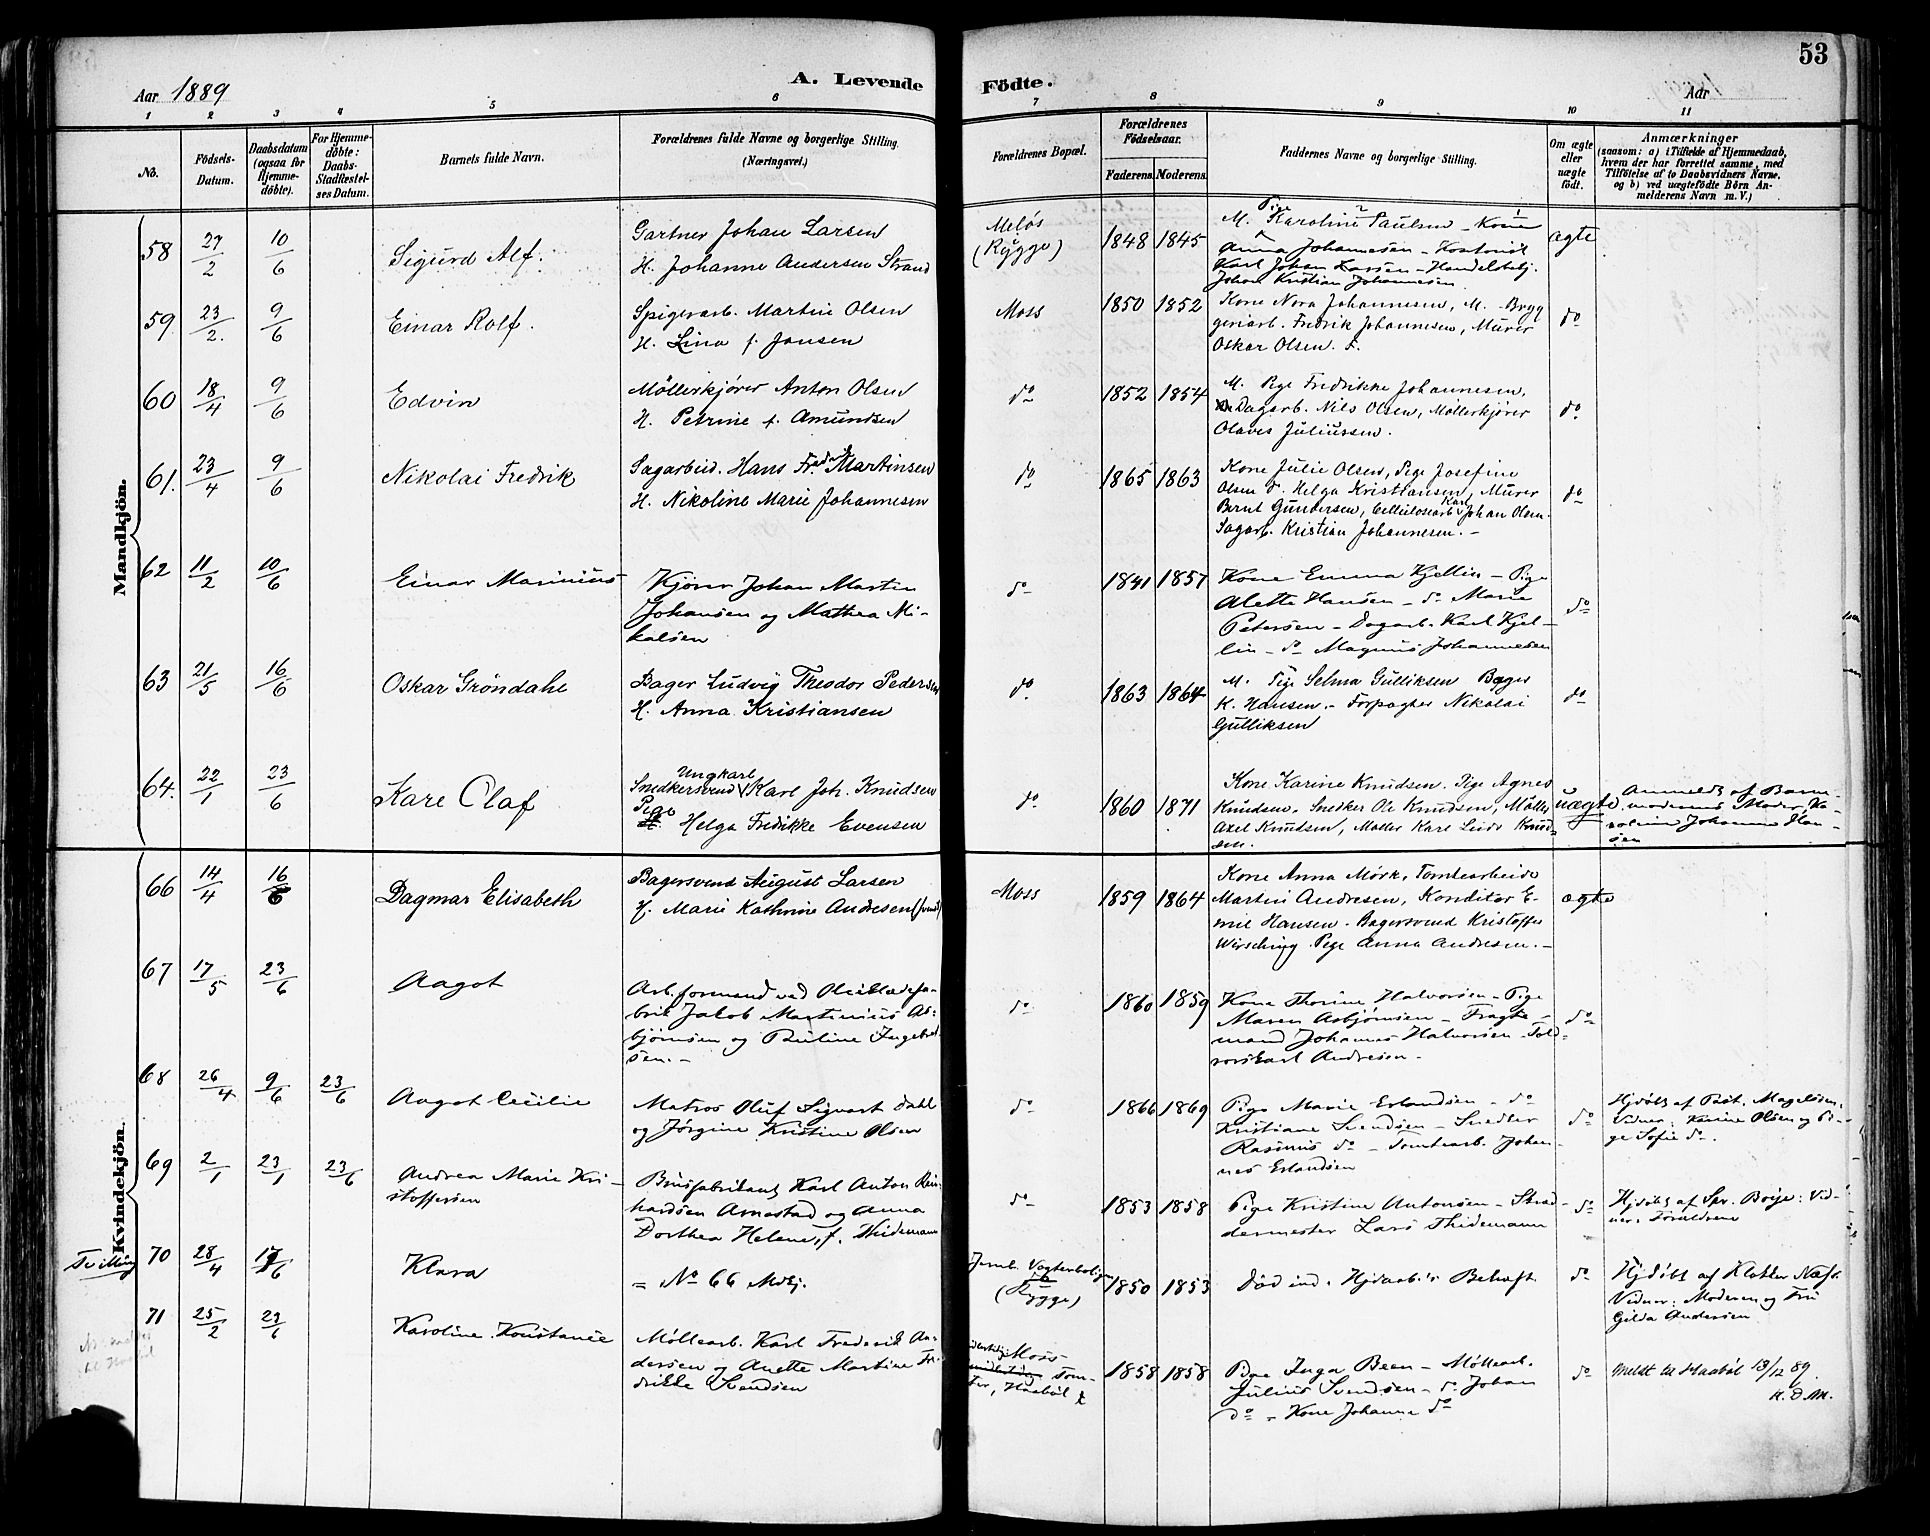 53
Aar 1889
A. Levende Födte.
Aar
1 2 3 4 5 6 7 8 9 10 11
No.
Födsels-Datum.
Daabsdatum (ogsaa for Hjemme-döbte).
For Hjemme-döbte: Daabs-Stadfæstel-ses Datum.
Barnets fulde Navn.
Forældrenes fulde Navne og borgerlige Stilling. (Næringsvei.)
Forældrenes Bopæl.
Forældrenes Födselsaar.
Faderens. Moderens.
Faddernes Navne og borgerlige Stilling.
Om ægte eller uægte födt.
Anmærkninger
(saasom: a) i Tilfælde af Hjemmedaab,
hvem der har forrettet samme, med
Tilföielse af to Daabsvidners Navne,
og b) ved uægtefödte Börn An-
melderens Navn m. V.)
Mandkjön.
58 27/2 10/6 Sigurd Alf.
Gartner Johan Larsen
H. Johanne Andersen Strand
Meløs
(Rygge)
1848 1845
M. Pige Karoline Paulsen - Kone
Anna Johannesen -
Karl Johan Larsen - Handelsbetj.
Johan Kristian Johannesen
ægte
59. 23/2. 9/6 Einar Rolf.
Spigerarb. Martin Olsen
H. Lina f. Jansen
Moss
1850 1852
Kone Nora Johannesen, M. Bryg
geriarb. Fredrik Johannesen, Murer
Oskar Olsen. F.
do
60 18/4 9/6 Edvin
Møllerkjører Anton Olsen
H. Petrine f. Amundsen
do
1852 1854
M. Pige Fredrikke Johannesen,
Dagarb. Nils Olsen, Møllerkjører
Olaves Juliussen.
do.
61. 23/4 9/6 Nikolai Fredrik
Sagarbeid. Hans Fredrik Martinsen
H. Nikoline Marie Johannesen
do
1865 1863
Kone Julie Olsen, Pige Josefine
Olsen do. Helga Kristiansen, Murer
Bernt Gundersen, Cellulosearb. Karl Johan Olsen.
Sagarb. Kristian Johannesen. -
do
62 11/2 10/6 Einar Marinius
Kjører Johan Martin
Johansen og Mathea Mi-
kalsen
do
1841 1857
Kone Emma Kjellin - Pige
Alette Hansen - do Marie
Petersen - Dagarb. Karl Kjel-
lin - do Magnus Johannesen
do
63 21/5 16/6 Oskar Grøndahl
Bager Ludvig Theodor Pedersen
H. Anna Kristiansen
do.
1863 1864
M. Pige Selma Gulliksen Bager
K. Hansen. - Forpagter Nikolai
Gulliksen
do
64. 22/1 23/6 Kare Olaf
Ungkarl
Snedkersvend Karl Joh. Knudsen
Pige
H. Helga Fredrikke Evensen
do
1860 1871
Kone Karine Knudsen. Pige Agnes
Knudsen, Snedker Ole Knudsen, Møller
Axel Knudsen, Møller Karl Knud-
sen.
uægte
Anmeldt af Barne-
moderens Moder Ka-
roline Johanne Han-
sen
Kvindekjön.
66 14/4 16/6 Dagmar Elisabeth
Bagersvend August Larsen
H. Marie Kathrine Andresen
Moss
1859 1864
Kone Anna Mörk, Tomtearbeider
Martin Andresen, Konditor E-
mil Hansen. Bagersvend Kristoffer
Wirsching. Pige Anna Andresen. -
ægte
67 17/5 23/6 Aagot
Arb.formand ved Olieklædefa-
brik Jakob Martinius As-
bjørnsen og Pauline Ingebret-
sen. -
do
1860 1859
Kone Thorine Halvorsen - Pige
Maren Asbjørnsen - Fragte-
mand Johannes Halvorsen - Told-
rorskarl Andresen -
do
68 26/4 9/6 23/6 Aagot Cecilie
Matros Oluf Sigvart Dahl
og Jørgine Kristine Olsen
do
1866 1869
Pige Marie Erlandsen - do
Kristiane Svendsen - Snedker
Rasmus do - Tomtearb. Johan-
nes Erlandsen
do
Hjdøbt af Past. Magelssen.
Vidner: Karine Olsen og Pi-
ge Sofie do.
69 2/1 23/1 23/6 Andrea Marie Kri-
stoffersen
Brusfabrikant Karl Anton Rein-
hardsen Arnestad og Anna
Dorthea Helene, f. Thidemann
do
1853 1858
Pige Kristine Antonsen - Skræd-
dermester Lars Thidemann
do
Hjdøbt af Spr. Boije: Vid-
ner: Forældrene
Tvilling 70 28/4 17/6 Klara
= No 66 Mdkj.
Jernb. Vogterbolig
(Rygge)
1850 1853
Død ind. Hjdaab's Bekræft.
do
Hjdøbt af Klokker Næss.
Vidner: Moderen og Fru
Gilda Andersen
71 25/2 23/6 Karoline Konstance
Møllearb. Karl Frederik An-
dersen og Anette Martine Fre-
drikke Svendsen
Moss
Tom-
ter, Haabøl
1858 1858
Pige Inga Been - Møllearb.
Julius Svendsen - do Johan
do - Kone Johanne do
do
Meldt til Haabøl 13/12 89.
K. D. M.